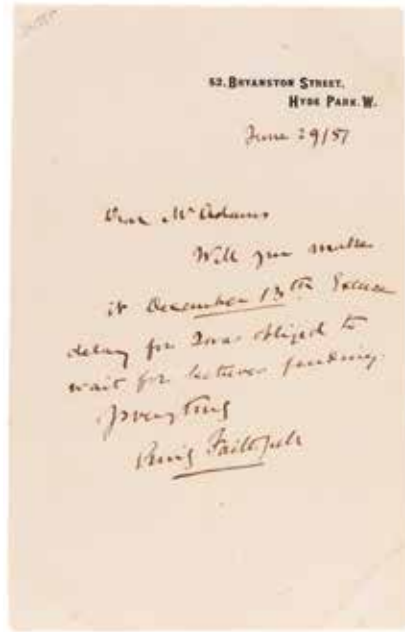 52, BRYANSTON STREET,
HYDE PARK. W.
June 29/87
Dear Mr Adams
Will you make
it December 13th. Excuse
delay for I was obliged to
wait for letters pending.
Faithfull